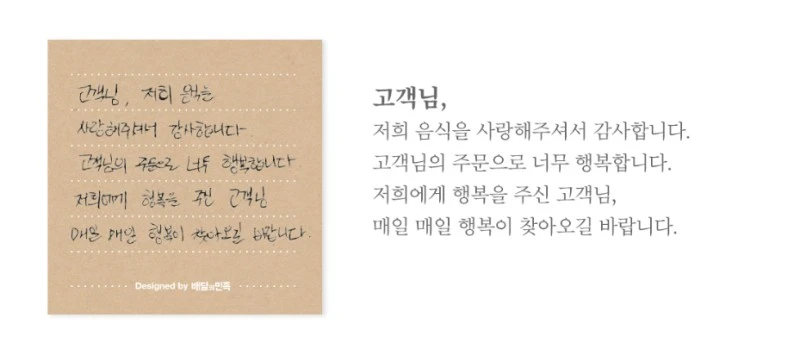 고객님, 저희 음식을
사랑해주셔서 감사합니다.
고객님의 주문으로 너무 행복합니다.
저희에게 행복을 주신 고객님
매일 매일 행복이 찾아오길 바랍니다.
Designed by 배달의민족
고객님,
저희 음식을 사랑해주셔서 감사합니다.
고객님의 주문으로 너무 행복합니다.
저희에게 행복을 주신 고객님,
매일 매일 행복이 찾아오길 바랍니다.